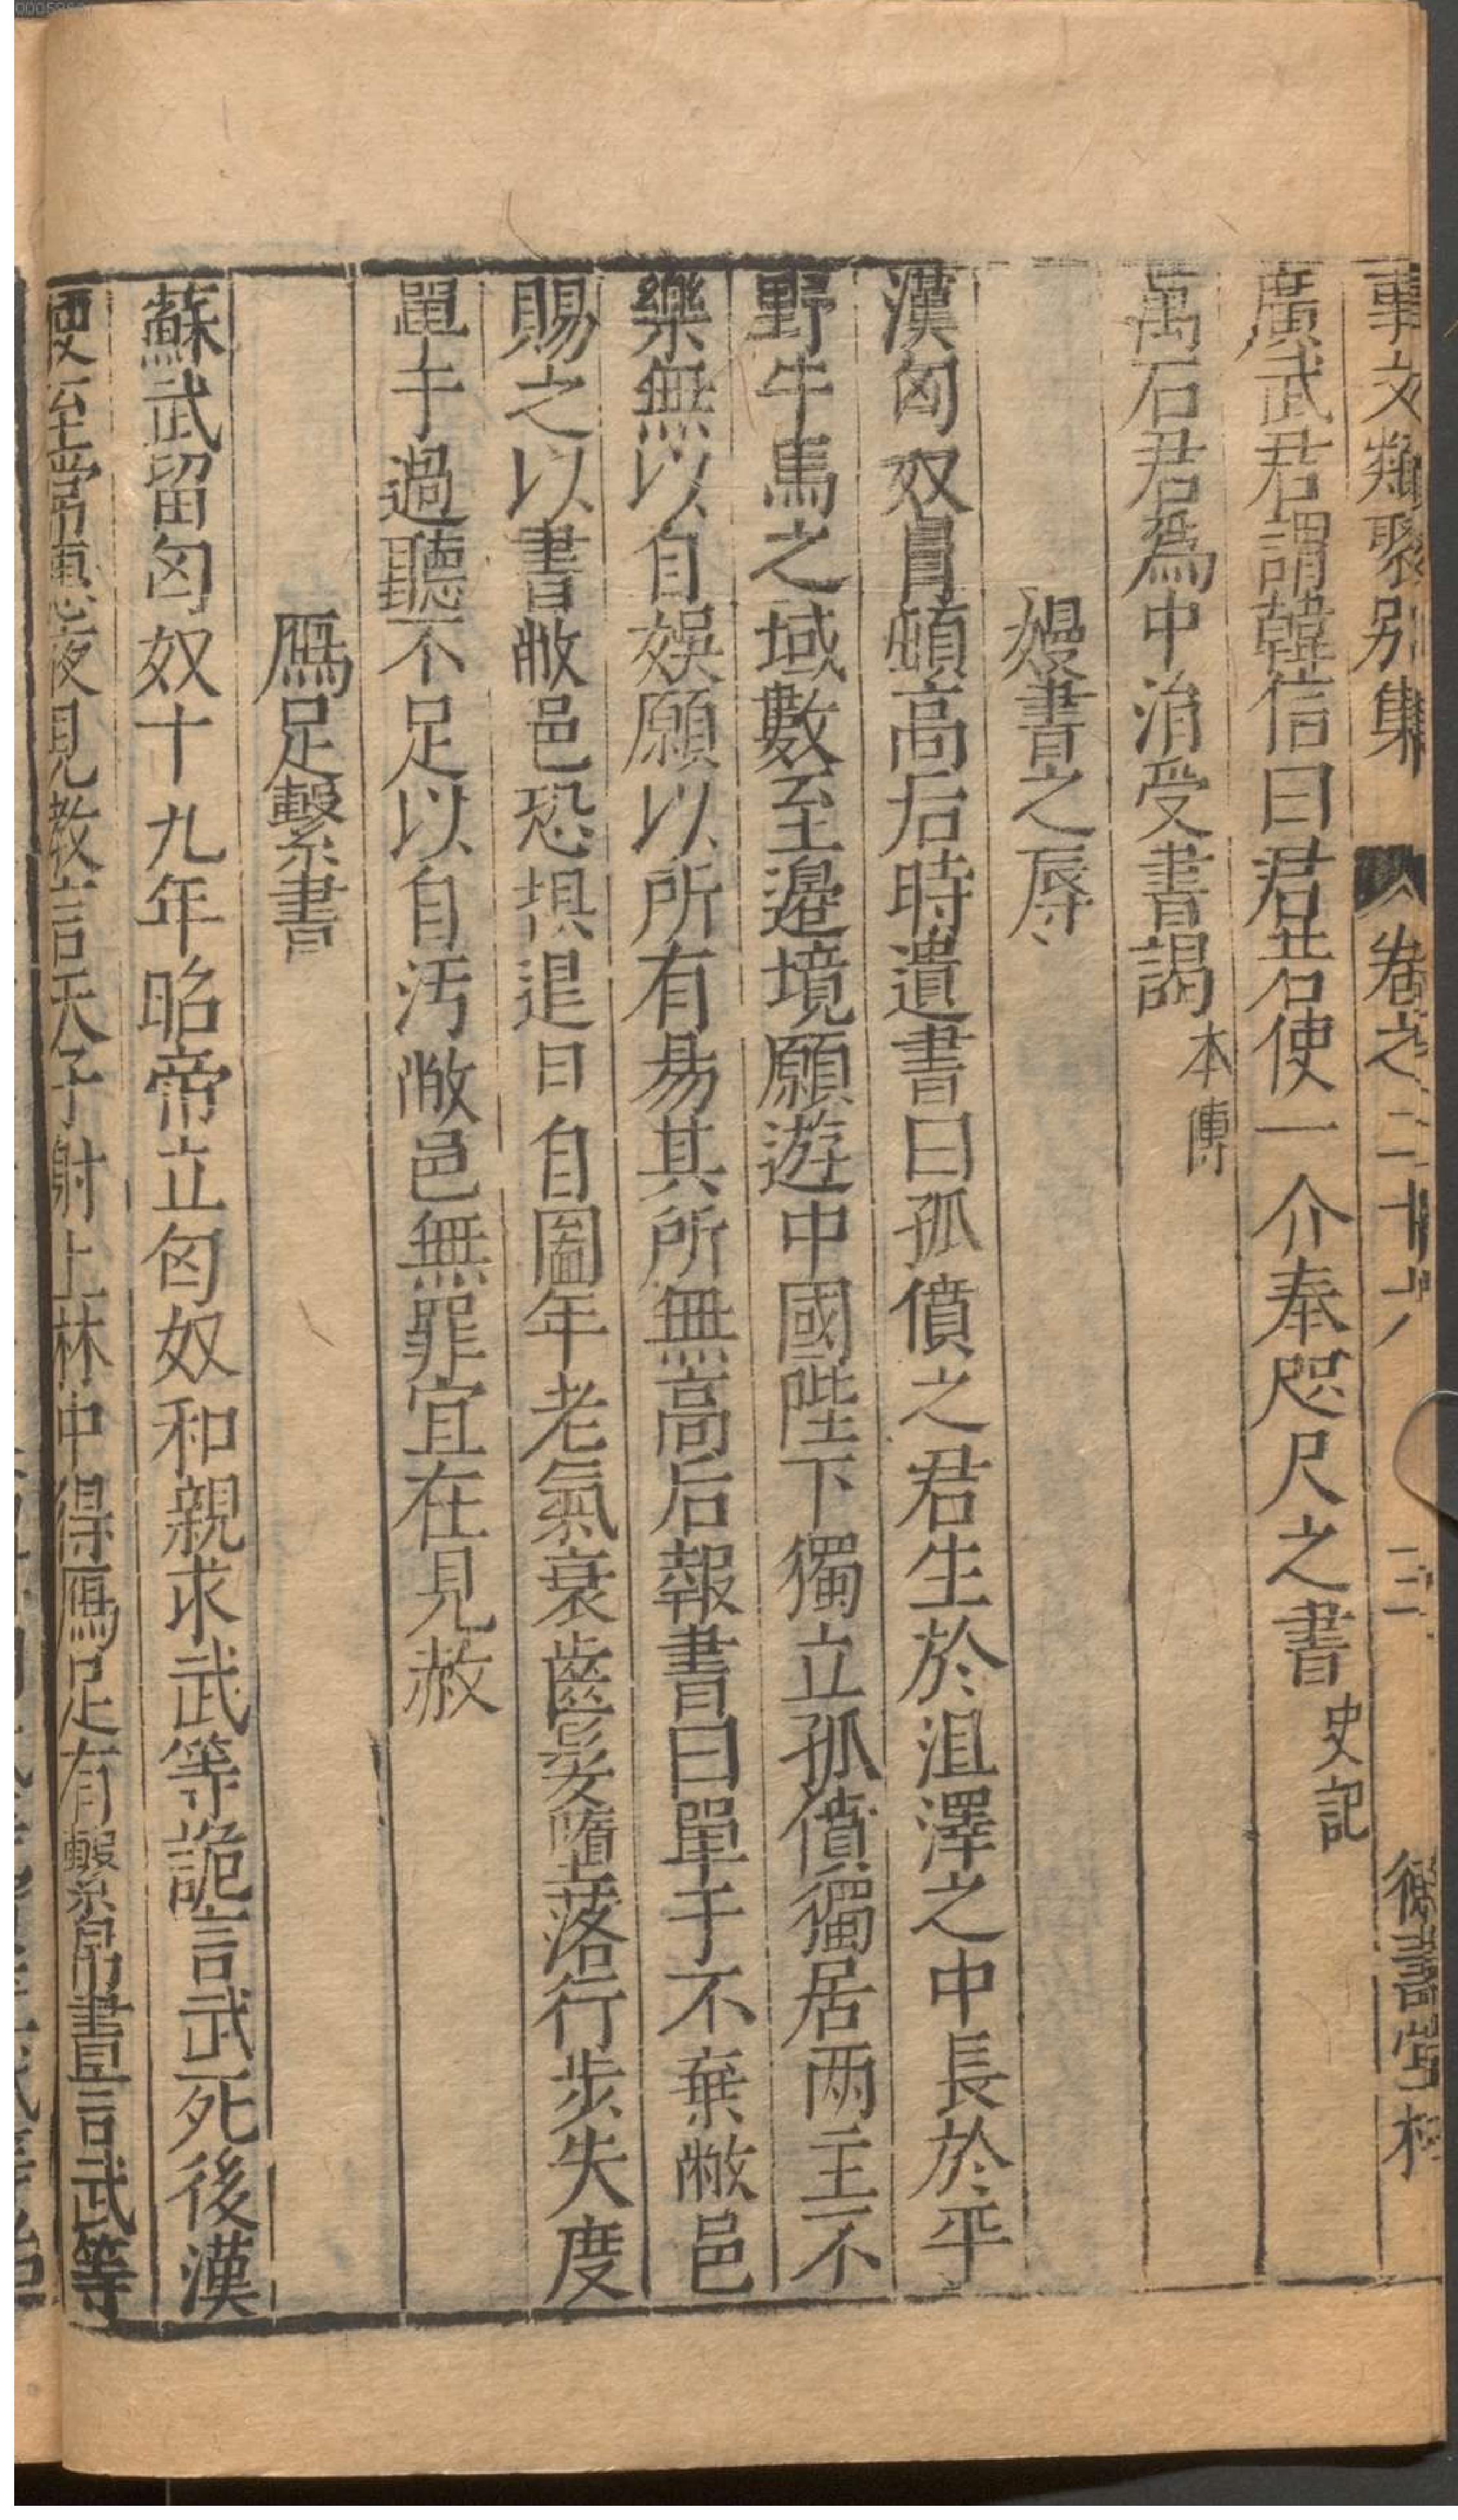 事文類聚別集 卷之二十六 三 德壽堂梓
廣武君謂韓信曰君若使一介奉咫尺之書史記
萬石君爲中涓受書謁本傳
嫚書之辱
漢匈奴冒頓高后時遺書曰孤僨之君生於沮澤之中長於平
野牛馬之域數至邉境願遊中國陛下獨立孤僨獨居两主不
樂無以自娛願以所有易其所無高后報書曰單于不棄敝邑
賜之以書敝邑恐惧退日自圖年老氣衰齒髮墮落行步失度
單于過聽不足以自汚敝邑無罪宜在見赦
鴈足繫書
蘇武留匈奴十九年昭帝立匈奴和親求武等詭言武死後漢
使至常惠夜見教言天子射上林中得鴈足有繫帛書言武等